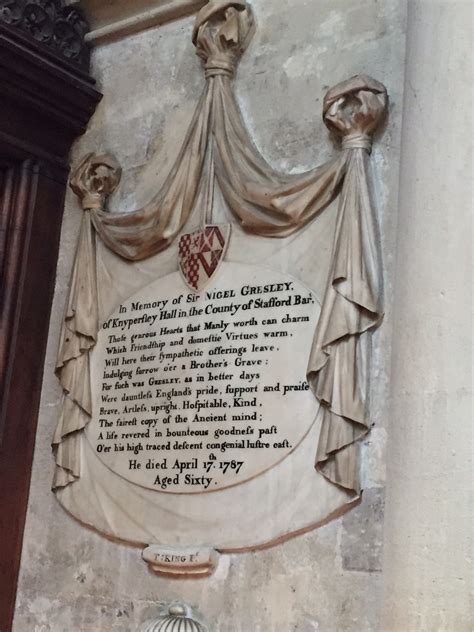 In Memory of Sir NIGEL GRESLEY,
of Knypersley Hall in the County of Stafford Bart.
Those generous Hearts that Manly worth can charm
Which Friendship and domestic Virtues warm,
Will here their sympathetic offerings leave,
Indulging sorrow o'er a Brother's Grave:
For such was GRESLEY, as in better days
Were dauntless England's pride, support and praise
Brave, Artless, upright, Hospitable, Kind,
The fairest copy of the Ancient mind;
A life revered in bounteous goodness past
O'er his high traced descent congenial lustre cast.
He died April 17th. 1787
Aged Sixty.
Ts: KING Ft.